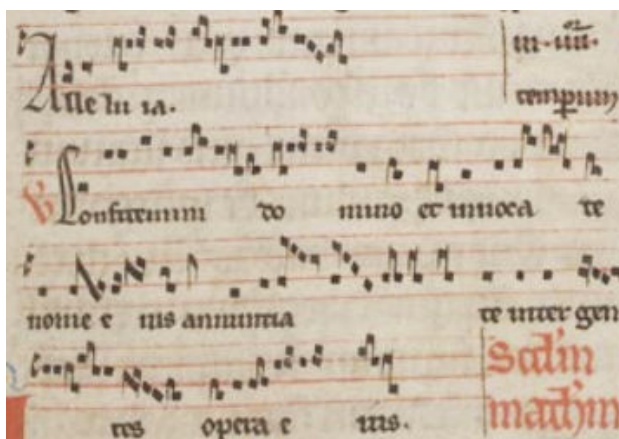 Alle lu ia.
in·iiii·
tempium
℣ Confitemini do mino et inuoca te
nome e ius annuntia te inter gen
tes opera e ius.
Scd'm
math'm